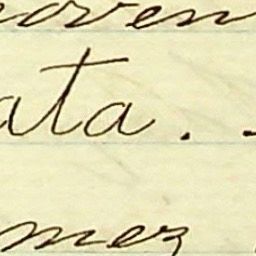 oven
ata. -
mez